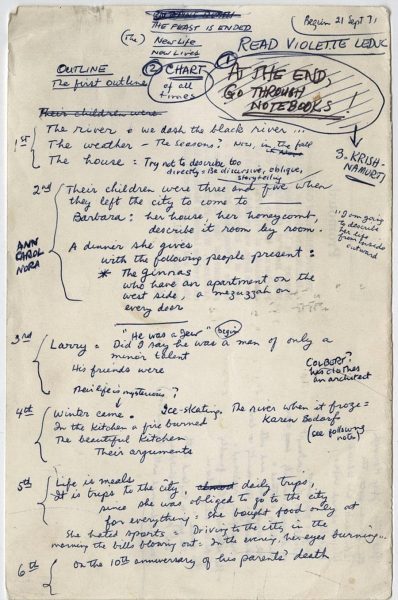 THE FEAST IS ENDED
(The) New Life
New Lives
(Begun 21 Sept 71
READ VIOLETTE LEDUC
OUTLINE
The first outline
② CHART
of all times
①
AT THE END,
GO THROUGH
NOTEBOOKS!
3. KRISH-
NAMURTI
Their children were
1st
The river = we dash the black river ...
The weather – The seasons? Now, in the fall
The house = Try not to describe too
directly = Be discursive, oblique,
storytelling
2nd
Their children were three and five when
they left the city to come to
Barbara: her house, her honeycomb,
describe it room by room.
"I am going
to describe
her life
from inside
outward
ANN
CAROL
NORA
A dinner she gives
with the following people present:
* The Ginnas
who have an apartment on the
west side, a mezuzzah on
every door
"He was a Jew" begin
3rd
Larry = Did I say he was a man of only a
minor talent
His friends were
COLBERT?
has clothes
an architect
Their life is mysterious?
4th
Winter came. Ice-skating. The river when it froze =
In the kitchen a fire burned Karen Bodarf
The beautiful kitchen (see following
note)
Their arguments
5th
Life is meals
It is trips to the city almost daily trips,
since she was obliged to go to the city
for everything = she bought food only at
She hated sports = Driving to the city in the
morning the bills blowing out = In the evening, her eyes burning...
6th
On the 10th anniversary of his parents' death